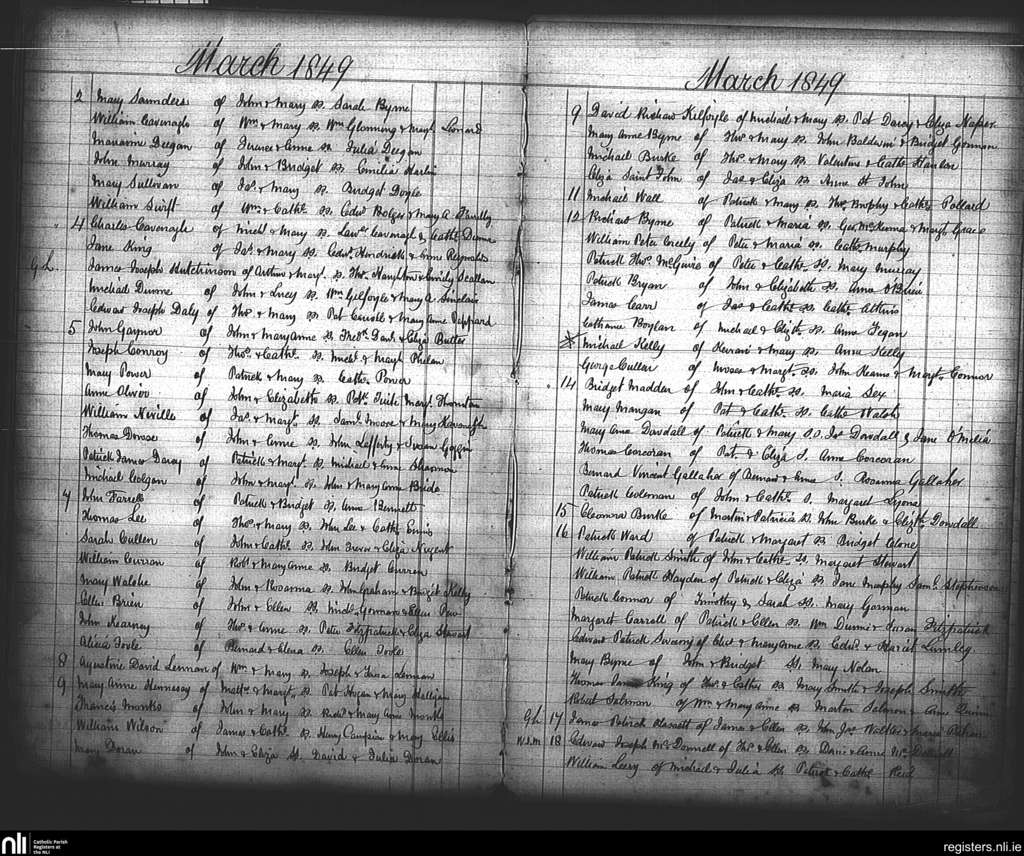 March 1849
2 Mary Saunders of John & Mary Sp. Sarah Byrne
William Cavenagh of Wm & Mary Sp. Wm Glenning & Mary Leonard
Marianne Deegan of & Anne Sp. Julia Deegan
John Murray of John & Bridget Sp. Emilia
Mary Sullivan of Jas. & Mary Sp. Bridget Doyle
William Swift of Wm & Cathe. Sp. Edwd Bolger & Mary A
4 Charles Cavenagh of Michl & Mary Sp. Lawce Cavenagh & Cathe. Dunne
Jane King of Jas. & Mary Sp. Edwd. Hendrick & Anne Reynolds
James Joseph Hutchinson of Arthur & Mary Sp. Thos. Naughton & Emily Scallan
Michael Dunne of John & Lucy Sp. Wm Gilfoyle & Mary A Sinclair
Edward Joseph Daly of Thos. & Mary Sp. Pat Carroll & Mary Anne Peppard
5 John Gaynor of John & Maryanne Sp. Fredk. & Eliza Butler
Joseph Conroy of Thos. & Cathe. Sp. Michl. & Mary Phelan
Mary Power of Patrick & Mary Sp. Cathe. Power
Anne Oliver of John & Elizabeth Sp. Patk. Mary Thornton
William Neville of Jas. & Margt. Sp. Saml. Moore & Mary Kavanagh
Thomas Dowse of John & Anne Sp. John Lafferty & Susan
Patrick James Darcy of Patrick & Margt. Sp. Michael & Anne Shannon
Michael Colgan of John & Mary Sp. John & Mary Anne Bride
7 John Farrell of Patrick & Bridget Sp. Anne Bennett
Thomas Lee of Thos. & Mary Sp. Wm Lee & Cathe Ennis
Sarah Cullen of John & Cathe. Sp. John & Eliza Nugent
William Curran of Robt & Mary Anne Sp. Bridget Curran
Mary Walshe of John & Rosanna Sp. John Graham & Bridget Kelly
Ellen Brien of John & Ellen Sp. Gorman & Ellen
John Kearney of Thos. & Anne Sp. Peter Fitzpatrick & Eliza Stewart
Alicia Toole of Bernard & Elena Sp. Ellen Toole
8 Augustine David Lennan of Wm & Mary Sp. Joseph & Lennan
9 Mary Anne Hennessy of Matt. & Margt. Sp. Pat Hogan & Mary Halligan
Francis Monks of John & Mary Sp. Richd. & Mary Anne Monks
William Wilson of James & Cathe. Sp. Henry Campion & Mary Ellis
Mary Doran of John & Eliza Sp. David & Julia Doran
March 1849
9 David Richard Kilfoyle of Michael & Mary Sp. Pat Darcy & Eliza Napier
Mary Anne Byrne of Thos. & Mary Sp. John Baldwin & Bridget Gorman
Michael Burke of Thos. & Mary Sp. Valentine & Cathe Hanlon
Eliza Saint John of Jas. & Eliza Sp. Anne St John
11 Michael Wall of Patrick & Mary Sp. Thos. Murphy & Cathe. Pollard
12 Richard Byrne of Patrick & Maria Sp. Geo. McKenna & Margt Grace
William Peter Creely of Peter & Maria Sp. Cathe. Murphy
Patrick Thos. McGuire of Peter & Cathe. Sp. Mary Murray
Patrick Bryan of John & Elizabeth Sp. Anna O'Brien
James Carr of Jas & Cathe. Sp. Cathe. Atkins
Catharine Boylan of Michael & Elizth. Sp. Anne Fegan
Michael Kelly of Kieran & Mary Sp. Anna Kelly
George Cullen of Moses & Margt. Sp. John Kearns & Margt. Connor
14 Bridget Madden of John & Cathe. Sp. Maria Sex
Mary Mangan of Pat & Cathe. Sp. Cathe Walsh
Mary Anne Dowdall of Patrick & Mary S.S. Jas Dowdall & Jane O'Melia
Thomas Corcoran of Pat. & Eliza S. Anne Corcoran
Bernard Vincent Gallaher of Bernard & Anne S. Rosanna Gallaher
Patrick Coleman of John & Cathe. S. Margaret Lyons
15 Eleonora Burke of Martin & Patricia Sp. John Burke & Elizth. Dowdall
16 Patrick Ward of Patrick & Margaret Sp. Bridget Clone
William Patrick Smith of John & Cathe. Sp. Margaret Stewart
William Patrick Hayden of Patrick & Eliza Sp. Jane Murphy Saml. Stephenson
Patrick Connor of Timothy & Sarah Sp. Mary Gorman
Margaret Carroll of Patrick & Ellen Sp. Wm Dunne & Susan Fitzpatrick
Edward Patrick Sweeny of Edwd & Maryanne Sp. Edwd. & Harriet Lumley
Mary Byrne of John & Bridget Sp. Mary Nolan
Thomas James King of Thos. & Cathe Sp. Mary Smith & Joseph Smith
Robert Salmon of Wm & Mary Anne Sp. Martin Salmon & Ann Quinn
17 James Patrick of James & Ellen Sp. John Jos. Walker & Maria
18 Edward Joseph McDonnell of Thos. & Ellen Sp. & Anne McDonnell
William Leery of Michael & Julia Sp. Patrick & Cathe Reid
nli
Catholic Parish
Registers at
the NLI
registers.nli.ie